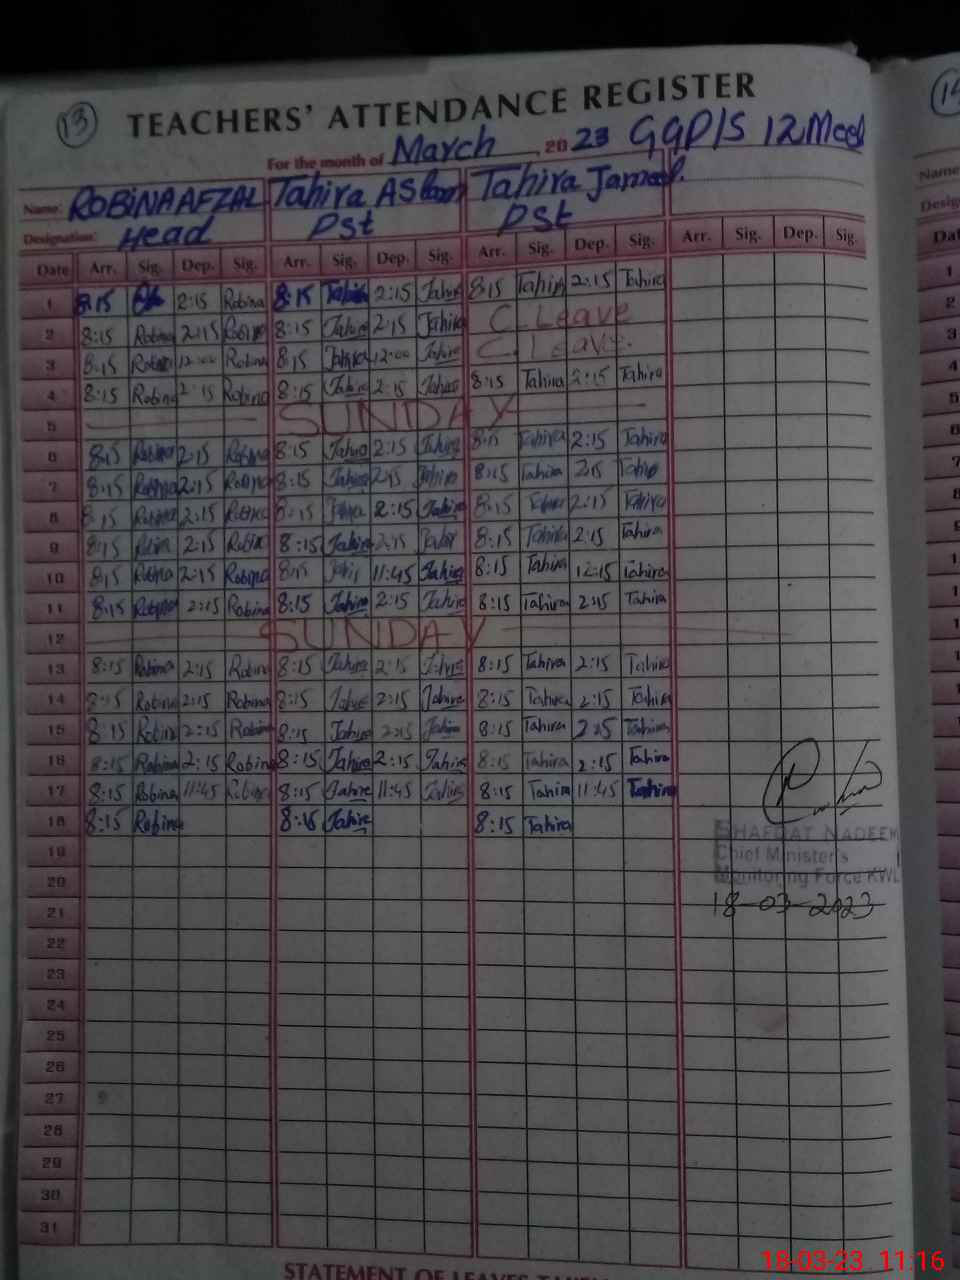 13
TEACHERS' ATTENDANCE REGISTER
For the month of March 2023 GGP/S 12 Meel
Name: ROBINA AFZAL Tahira Aslam Tahira Jameel.
Designation: Head Pst PSt
Date Arr. Sig. Dep. Sig. Arr. Sig. Dep. Sig. Arr. Sig. Dep. Sig. Arr. Sig. Dep. Sig.
1 8:15 2:15 Robina 8:15 Tahira 2:15 Tahira 8:15 Tahira 2:15 Tahira
2 8:15 Robina 2:15 Robina 8:15 Tahira 2:15 Tahira C. Leave
3 8:15 Robina 12:00 Robina 8:15 Tahira 12:00 Tahira C. Leave.
4 8:15 Robina 2:15 Robina 8:15 Tahira 2:15 Tahira 8:15 Tahira 2:15 Tahira
5 SUNDAY
6 8:15 Robina 2:15 Robina 8:15 Tahira 2:15 Tahira 8:15 Tahira 2:15 Tahira
7 8:15 Robina 2:15 Robina 8:15 Tahira 2:15 Tahira 8:15 Tahira 2:15 Tahira
8 8:15 Robina 2:15 Robina 8:15 Tahira 2:15 Tahira 8:15 Tahira 2:15 Tahira
9 8:15 Robina 2:15 Robina 8:15 Tahira 2:15 Tahira 8:15 Tahira 2:15 Tahira
10 8:15 Robina 2:15 Robina 8:15 Tahira 11:45 Tahira 8:15 Tahira 12:15 Tahira
11 8:15 Robina 2:15 Robina 8:15 Tahira 2:15 Tahira 8:15 Tahira 2:15 Tahira
12 SUNDAY
13 8:15 Robina 2:15 Robina 8:15 Tahira 2:15 Tahira 8:15 Tahira 2:15 Tahira
14 8:15 Robina 2:15 Robina 8:15 Tahira 2:15 Tahira 8:15 Tahira 2:15 Tahira
15 8:15 Robina 2:15 Robina 8:15 Tahira 2:15 Tahira 8:15 Tahira 2:15 Tahira
16 8:15 Robina 2:15 Robina 8:15 Tahira 2:15 Tahira 8:15 Tahira 2:15 Tahira
17 8:15 Robina 11:45 Robina 8:15 Tahira 11:45 Tahira 8:15 Tahira 11:45 Tahira
18 8:15 Robina 8:15 Tahira 8:15 Tahira
SHAFQAT NADEEM
19
Chief Minister's
20
Monitoring Force KWL
21
18-03-2023
22
23
24
25
26
27
28
29
30
31
18-03-23 11:16